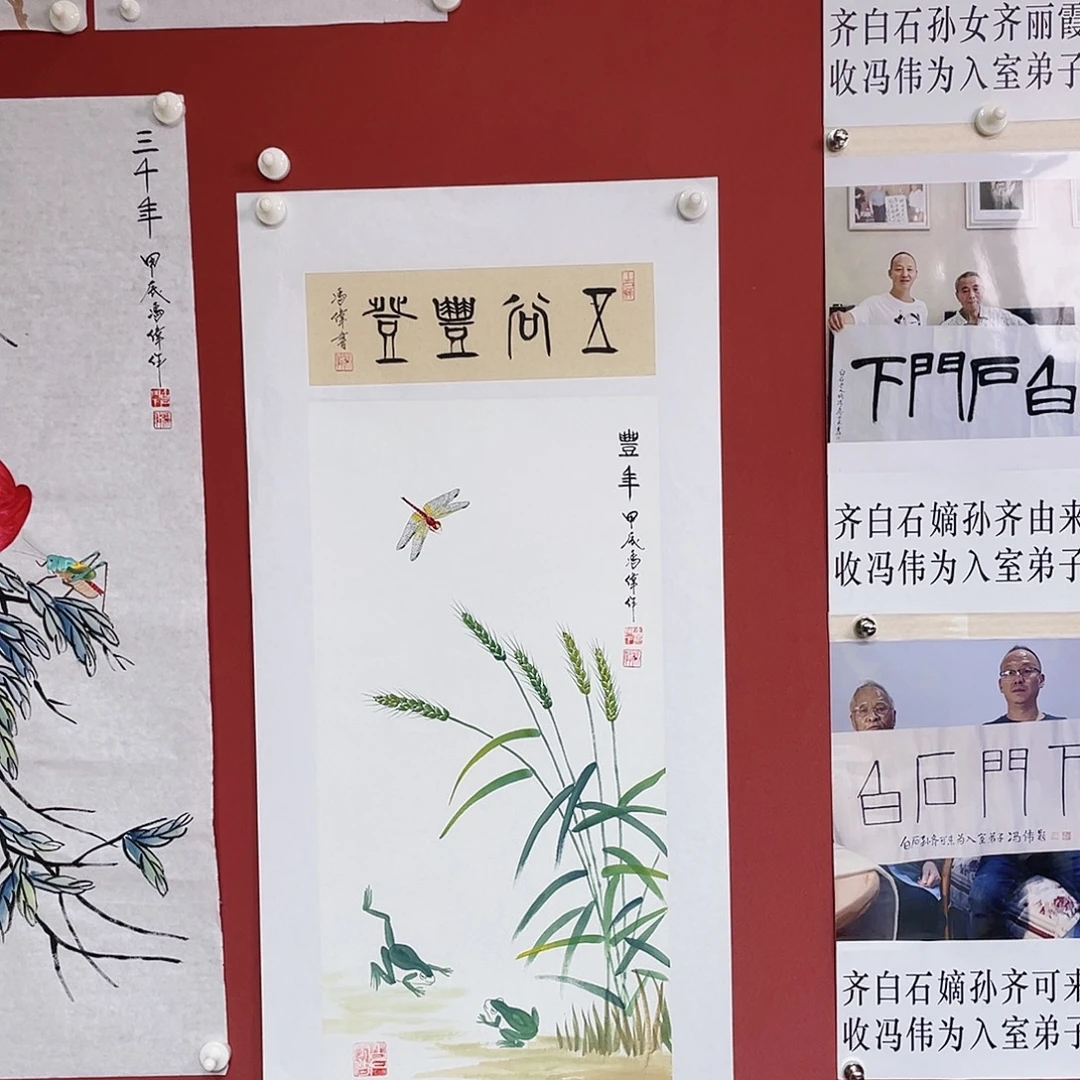 三千年
甲辰冯伟作
五谷豐登
冯偉書
豐年
甲辰冯偉作
齐白石孙女齐丽霞
收冯伟为入室弟子
白石門下
齐白石嫡孙齐由来
收冯伟为入室弟子
白石門下
白石孙齐可来为入室弟子冯伟题
齐白石嫡孙齐可来
收冯伟为入室弟子